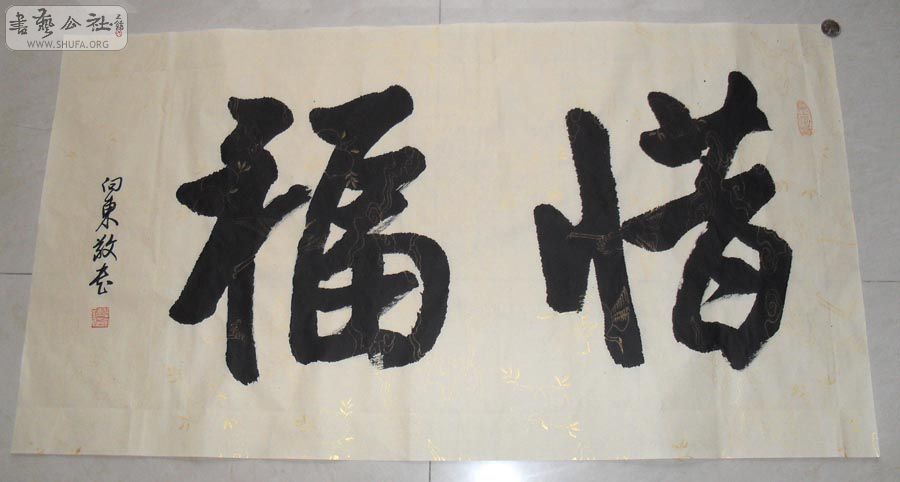 惜福
向東敬書
書藝公社
WWW.SHUFA.ORG